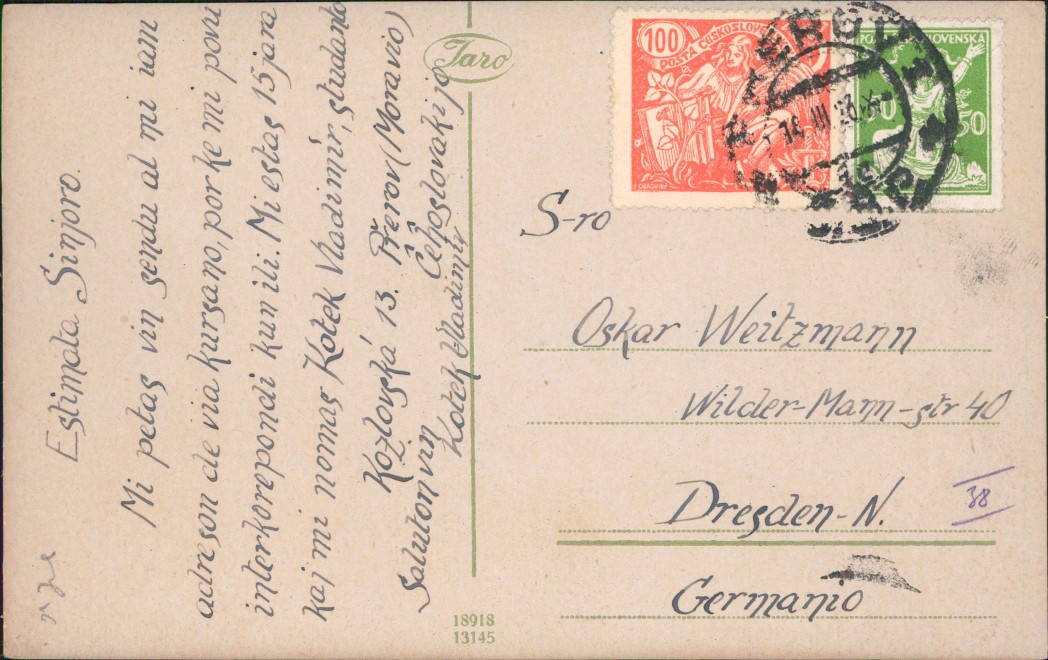 Estimata Sinjoro.
Mi petas vin sendu al mi iam
adreson de via kursano, por ke mi povu
interkorepondi kun ili. Mi estas 15 jara
kaj mi nomas Kotek Vladimír, studanto
Kozlovská 13. Přerov (Moravio)
Ĉeĥoslovakijo
Saluton vin
Kotek Vladimír
Taro
18918
13145
100
POŠTA ČESKOSLOVENSKÁ
50
S-ro
Oskar Weitzmann
Wilder-Mann-str 40
Dresden-N.
38
Germanio